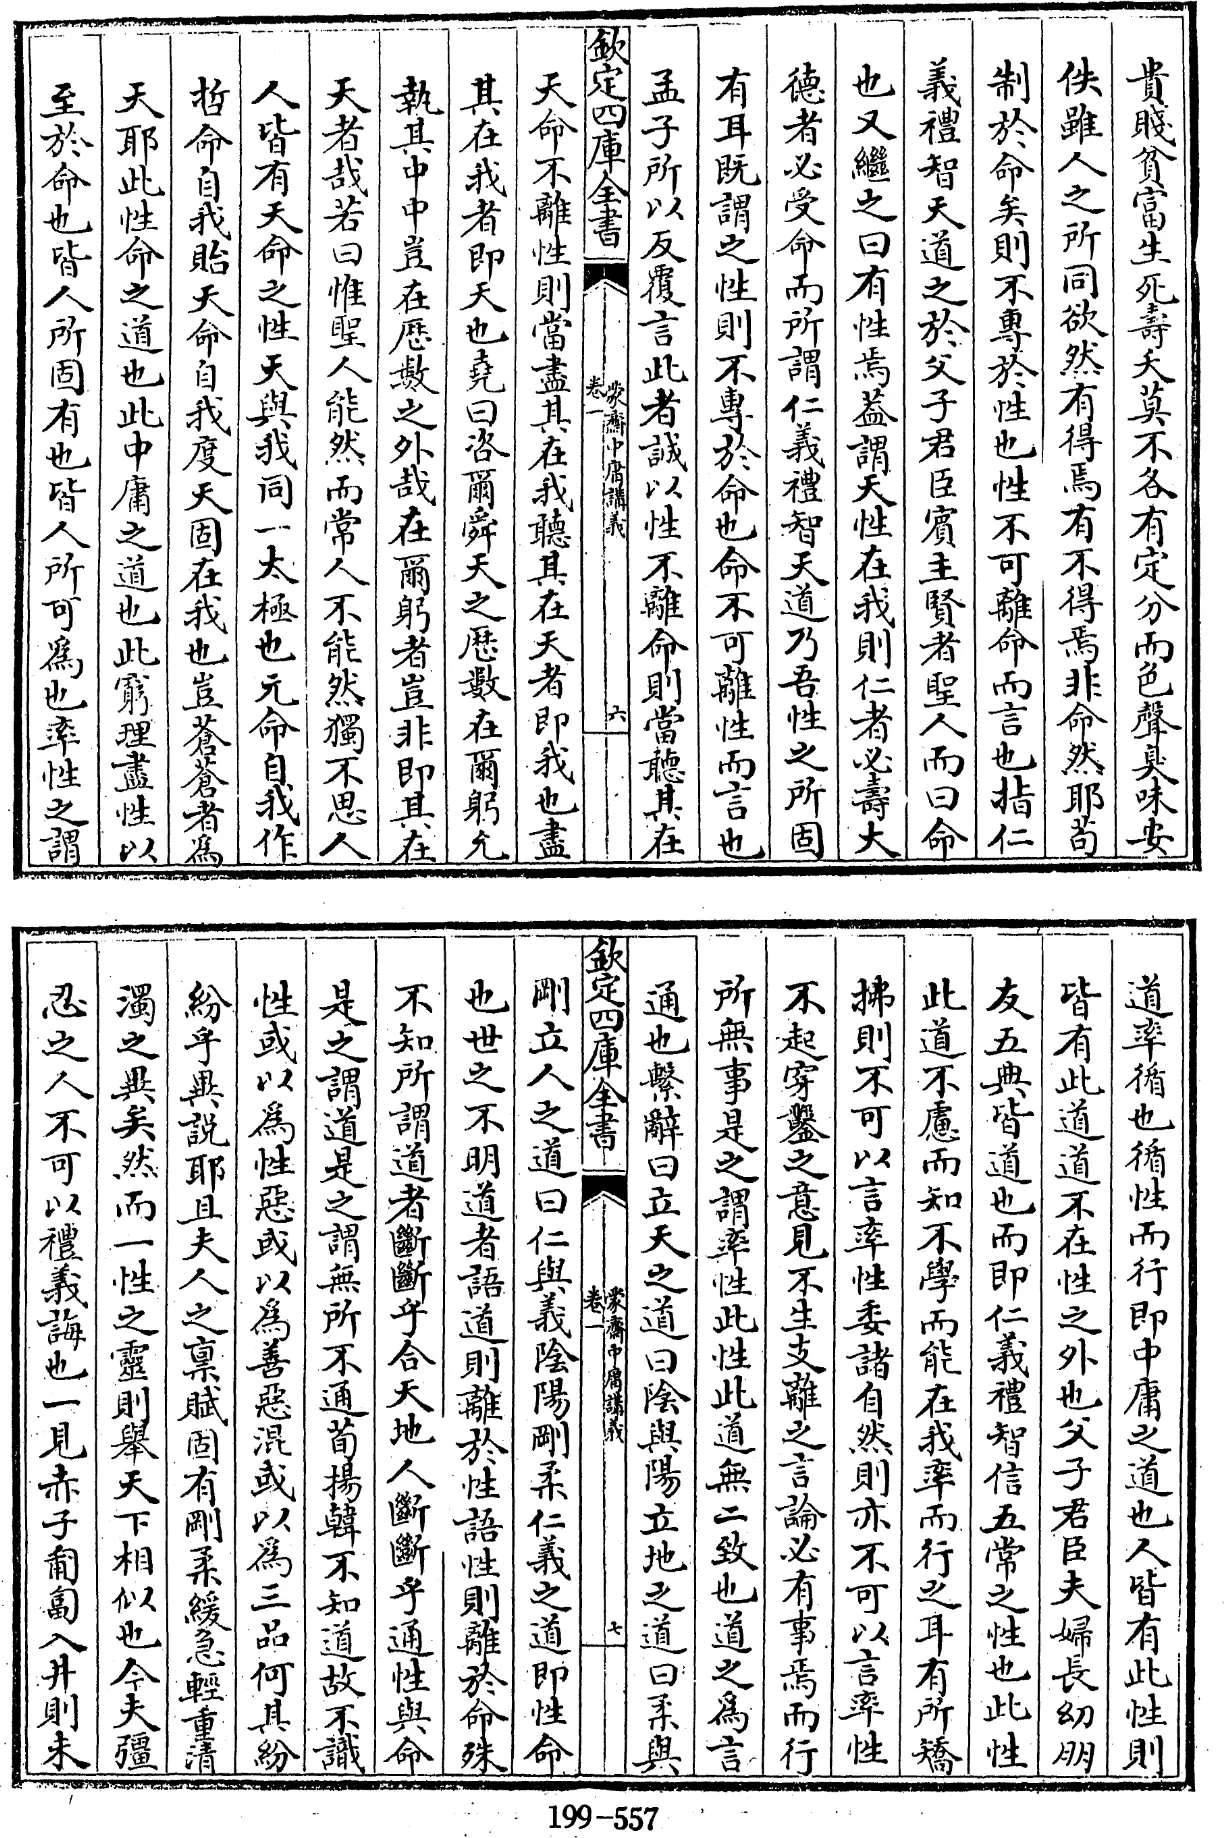 貴賤貧富生死壽夭莫不各有定分而色聲臭味安
佚雖人之所同欲然有得焉有不得焉非命然耶苟
制於命矣則不專於性也性不可離命而言也指仁
義禮智天道之於父子君臣賓主賢者聖人而曰命
也又繼之曰有性焉葢謂天性在我則仁者必壽大
德者必受命而所謂仁義禮智天道乃吾性之所固
有耳既謂之性則不專於命也命不可離性而言也
孟子所以反覆言此者誠以性不離命則當聽其在
欽定四庫全書
蒙齋中庸講義
卷一
六
天命不離性則當盡其在我聽其在天者即我也盡
其在我者即天也堯曰咨爾舜天之歷數在爾躬允
執其中中豈在歷數之外哉在爾躬者豈非即其在
天者哉若曰惟聖人能然而常人不能然獨不思人
人皆有天命之性天與我同一太極也元命自我作
哲命自我貽天命自我度天固在我也豈蒼蒼者為
天耶此性命之道也此中庸之道也此窮理盡性以
至於命也皆人所固有也皆人所可為也率性之謂
道率循也循性而行即中庸之道也人皆有此性則
皆有此道道不在性之外也父子君臣夫婦長幼朋
友五典皆道也而即仁義禮智信五常之性也此性
此道不慮而知不學而能在我率而行之耳有所矯
拂則不可以言率性委諸自然則亦不可以言率性
不起穿鑿之意見不生支離之言論必有事焉而行
所無事是之謂率性此性此道無二致也道之為言
通也繫辭曰立天之道曰陰與陽立地之道曰柔與
欽定四庫全書
蒙齋中庸講義
卷一
七
剛立人之道曰仁與義陰陽剛柔仁義之道即性命
也世之不明道者語道則離於性語性則離於命殊
不知所謂道者斷斷乎合天地人斷斷乎通性與命
是之謂道是之謂無所不通荀揚韓不知道故不識
性或以為性惡或以為善惡混或以為三品何其紛
紛乎異說耶且夫人之稟賦固有剛柔緩急輕重清
濁之異矣然而一性之靈則舉天下相似也今夫彊
忍之人不可以禮義誨也一見赤子匍匐入井則未
199-557